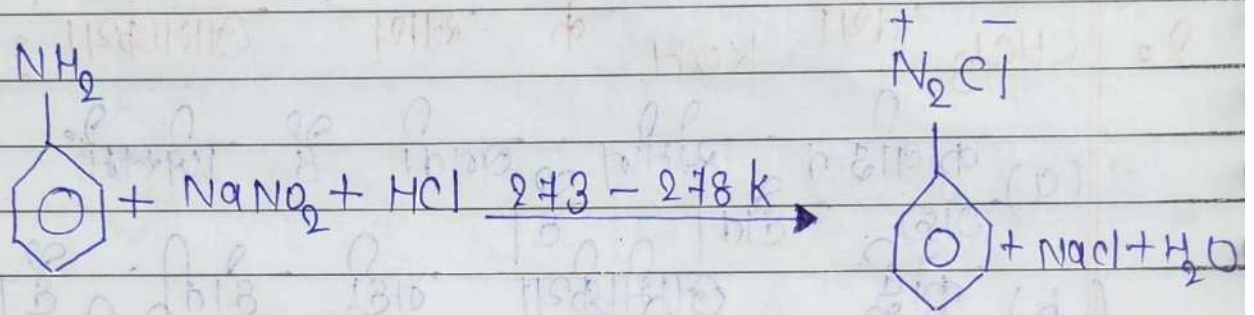 NH₂ + NaNO₂ + HCl 273 – 278 k → N₂⁺ Cl⁻ + Nacl + H₂O